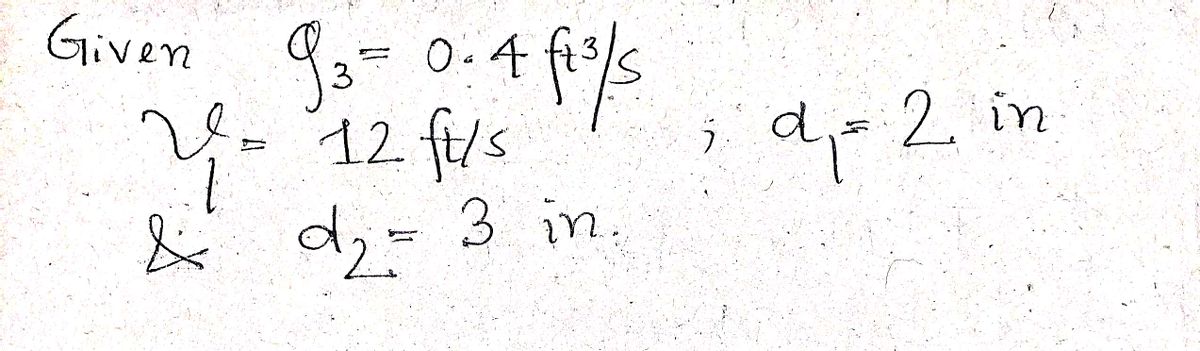 Given Q₃ = 0.4 ft³/s
V₁ = 12 ft/s ; d₁ = 2 in
& d₂ = 3 in.